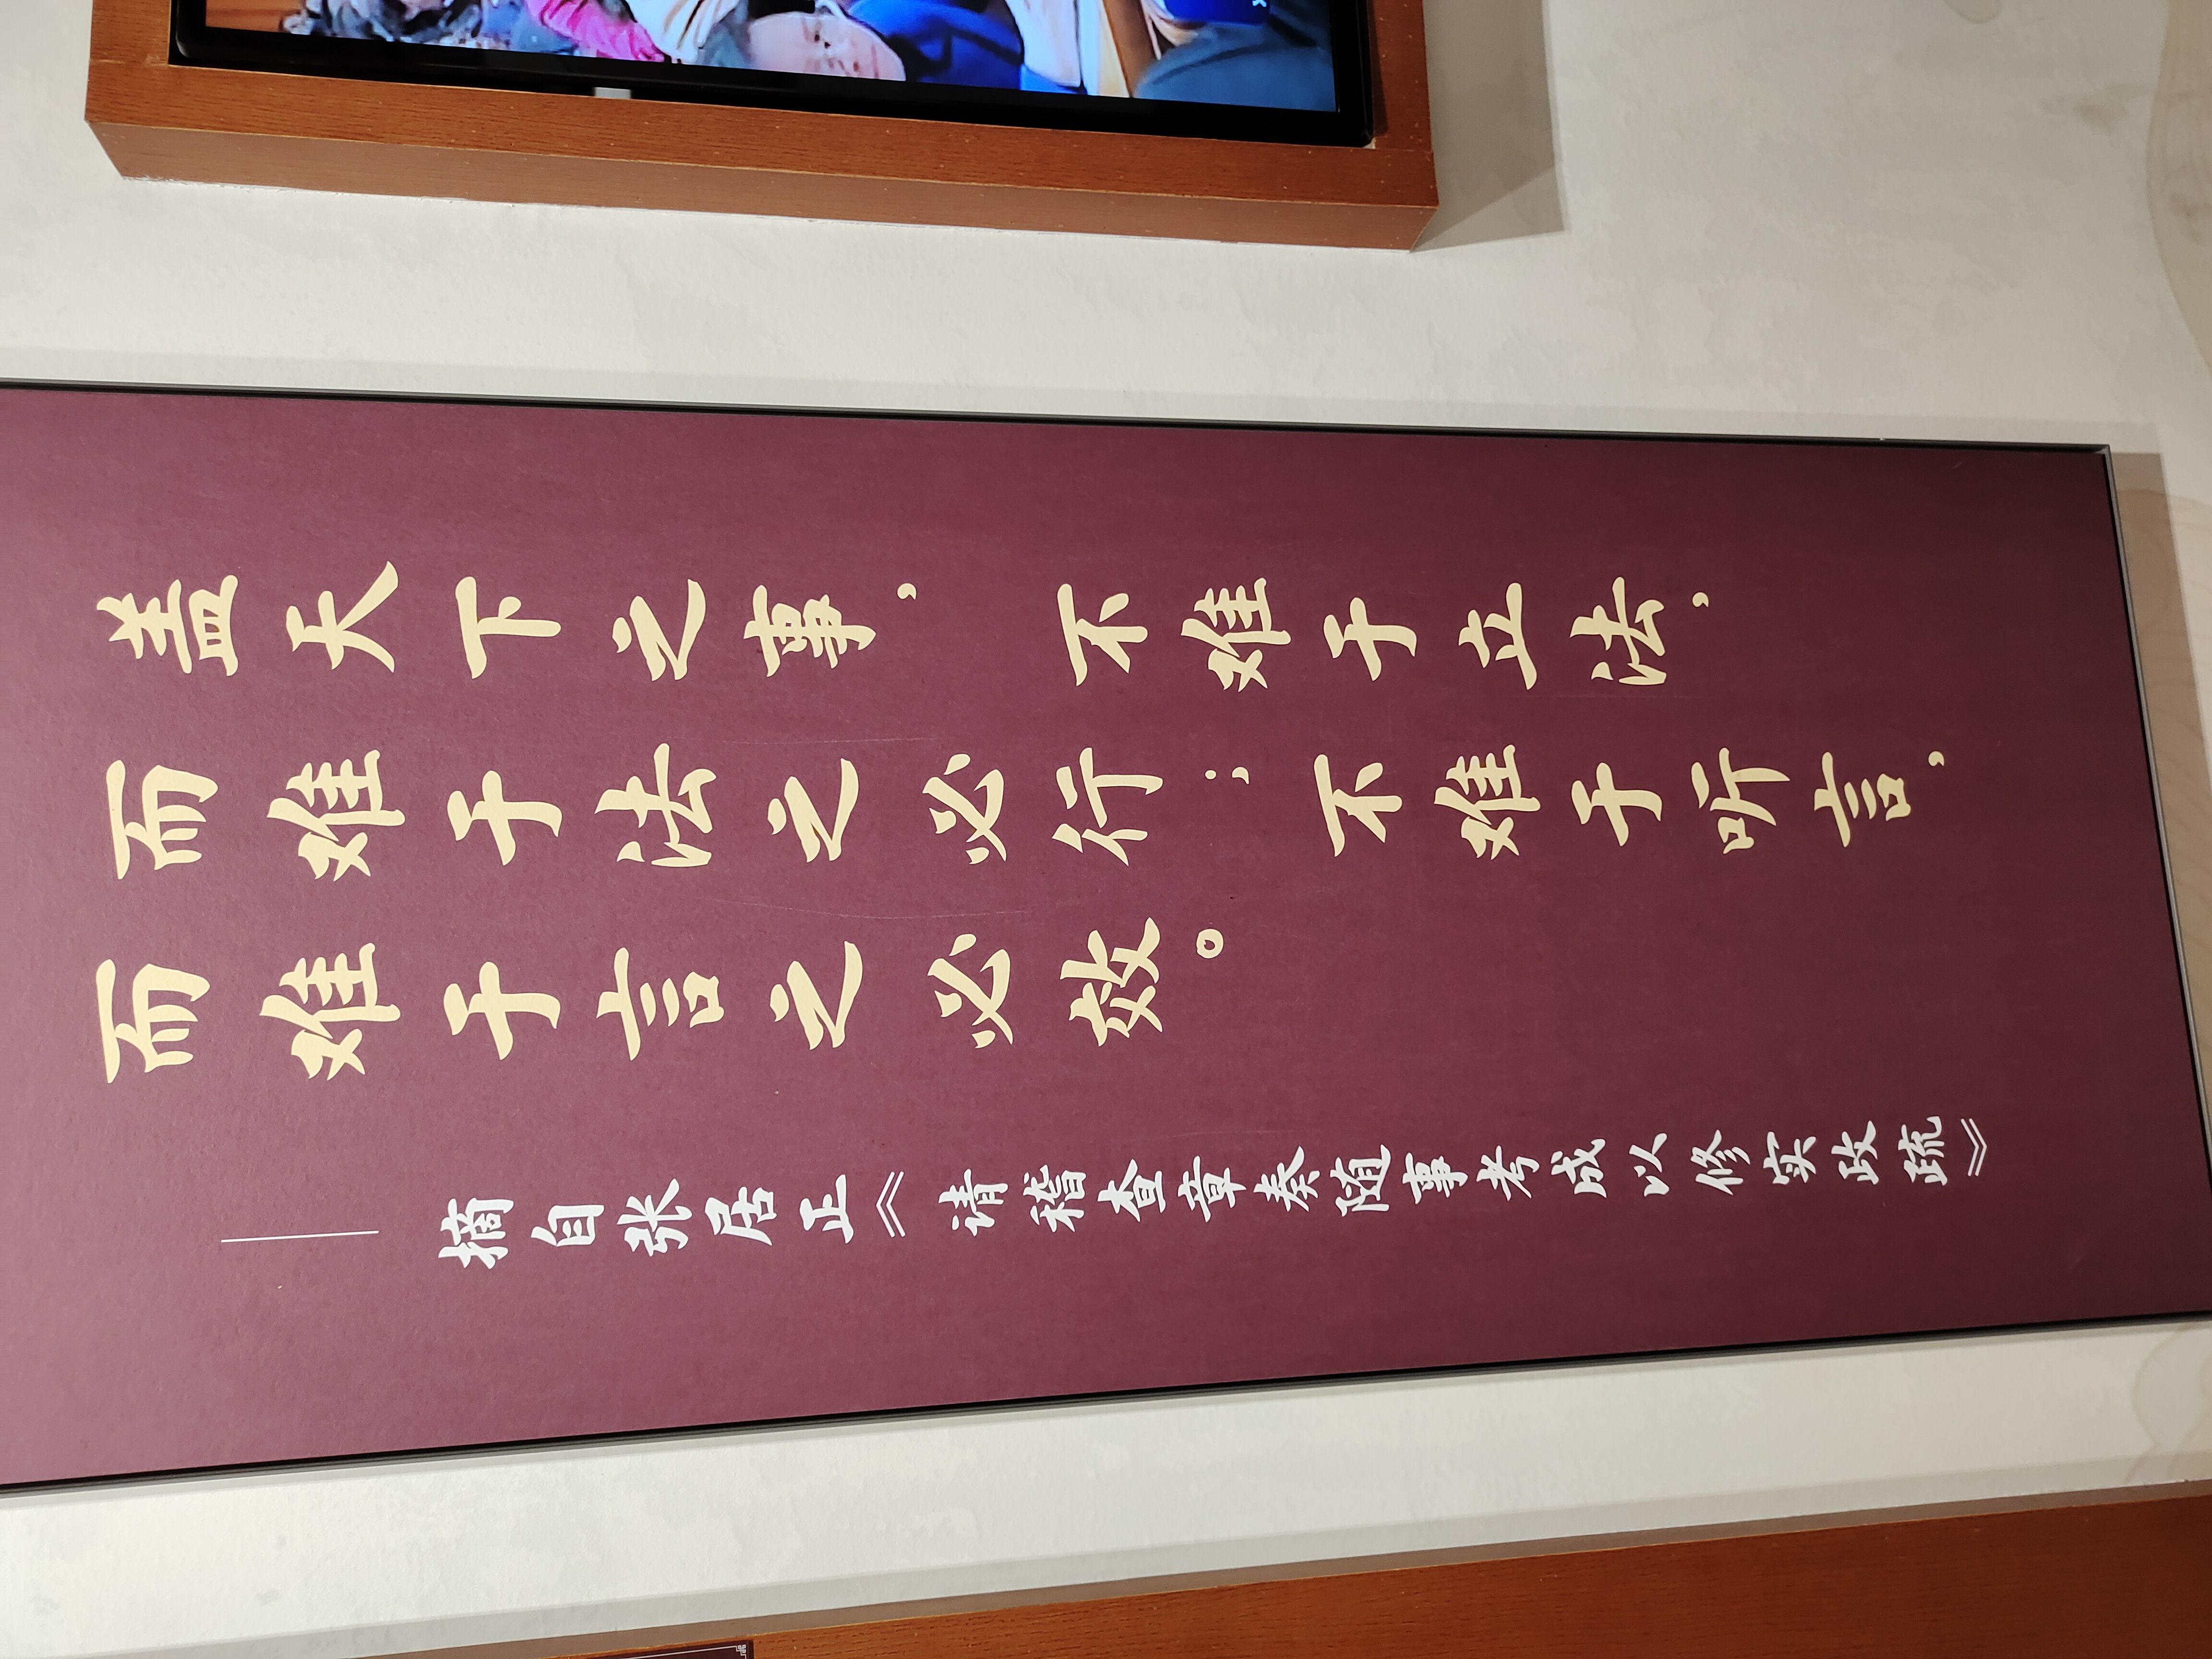 盖天下之事，不难于立法，
而难于法之必行；不难于听言，
而难于言之必效。
——摘自张居正《请稽查章奏随事考成以修实政疏》